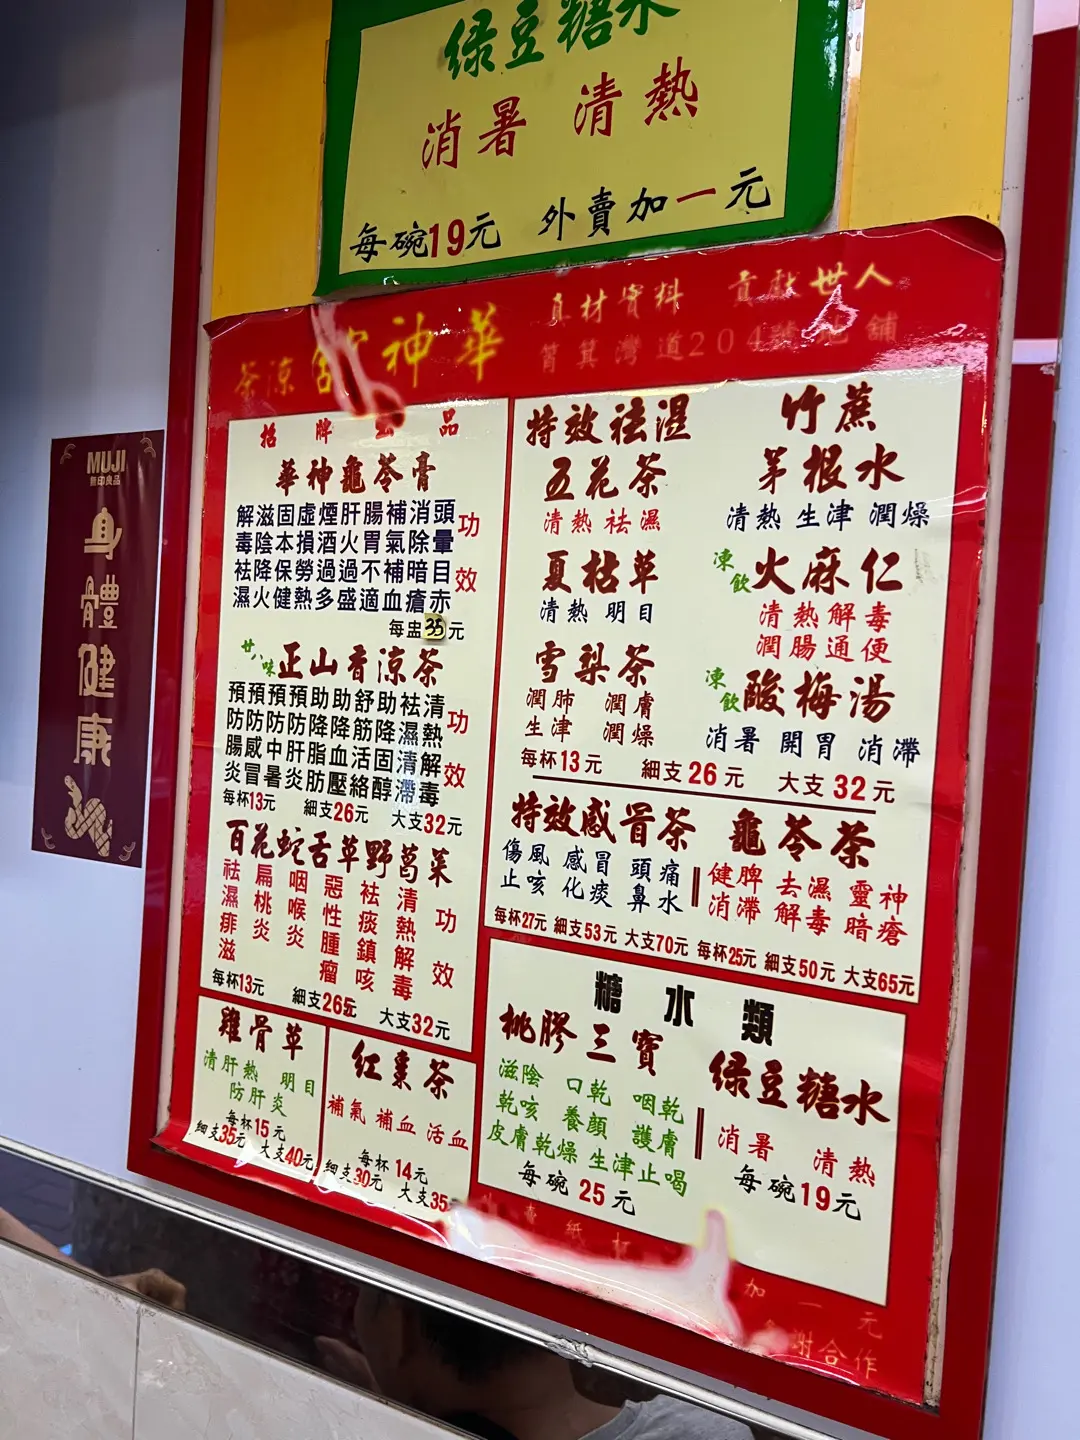 绿豆糖水
消暑 清熱
每碗19元 外賣加一元
茶涼舘神華
真材實料 貢獻世人
筲箕灣道204號地舖
招牌出品
華神龜苓膏
解滋固虛煙肝腸補消頭
毒陰本損酒火胃氣除暈
祛降保勞過過不補暗目
濕火健熱多盛適血瘡赤
功效
每盅35元
廿八味
正山香涼茶
預預預預助助舒助祛清
防防防防降降筋降濕熱
腸感中肝脂血活固清解
炎冒暑炎肪壓絡醇滯毒
功效
每杯13元 細支26元 大支32元
百花蛇舌草野葛菜
祛濕痱滋
扁桃炎
咽喉炎
惡性腫瘤
祛痰鎮咳
清熱解毒
功效
每杯13元 細支26元 大支32元
雞骨草
清肝熱 明目
防肝炎
每杯15元
細支35元 大支40元
紅棗茶
補氣 補血 活血
每杯14元
細支30元 大支35
特效祛濕
五花茶
清熱祛濕
夏枯草
清熱 明目
雪梨茶
潤肺 潤膚
生津 潤燥
竹蔗
茅根水
清熱 生津 潤燥
凍飲
火麻仁
清熱解毒
潤腸通便
凍飲
酸梅湯
消暑 開胃 消滯
每杯13元 細支26元 大支32元
特效感冒茶
傷風 感冒 頭痛
止咳 化痰 鼻水
每杯27元 細支53元 大支70元
龜苓茶
健脾 去濕 靈神
消滯 解毒 暗瘡
每杯25元 細支50元 大支65元
糖水類
桃膠三寶
滋陰 口乾 咽乾
乾咳 養顏 護膚
皮膚乾燥 生津止喝
每碗25元
绿豆糖水
消暑 清熱
每碗19元
賣紙
加一元
謝合作
MUJI
無印良品
身體健康